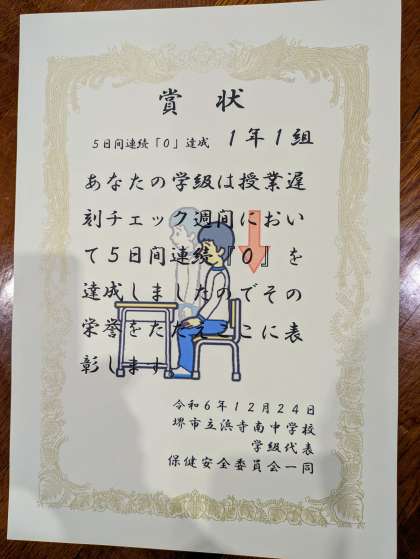 賞状
5日間連続「0」達成 1年1組
あなたの学級は授業遅
刻チェック週間におい
て5日間連続『0』を
達成しましたのでその
栄誉をたたえここに表
彰します
令和6年12月24日
堺市立浜寺南中学校
学級代表
保健安全委員会一同